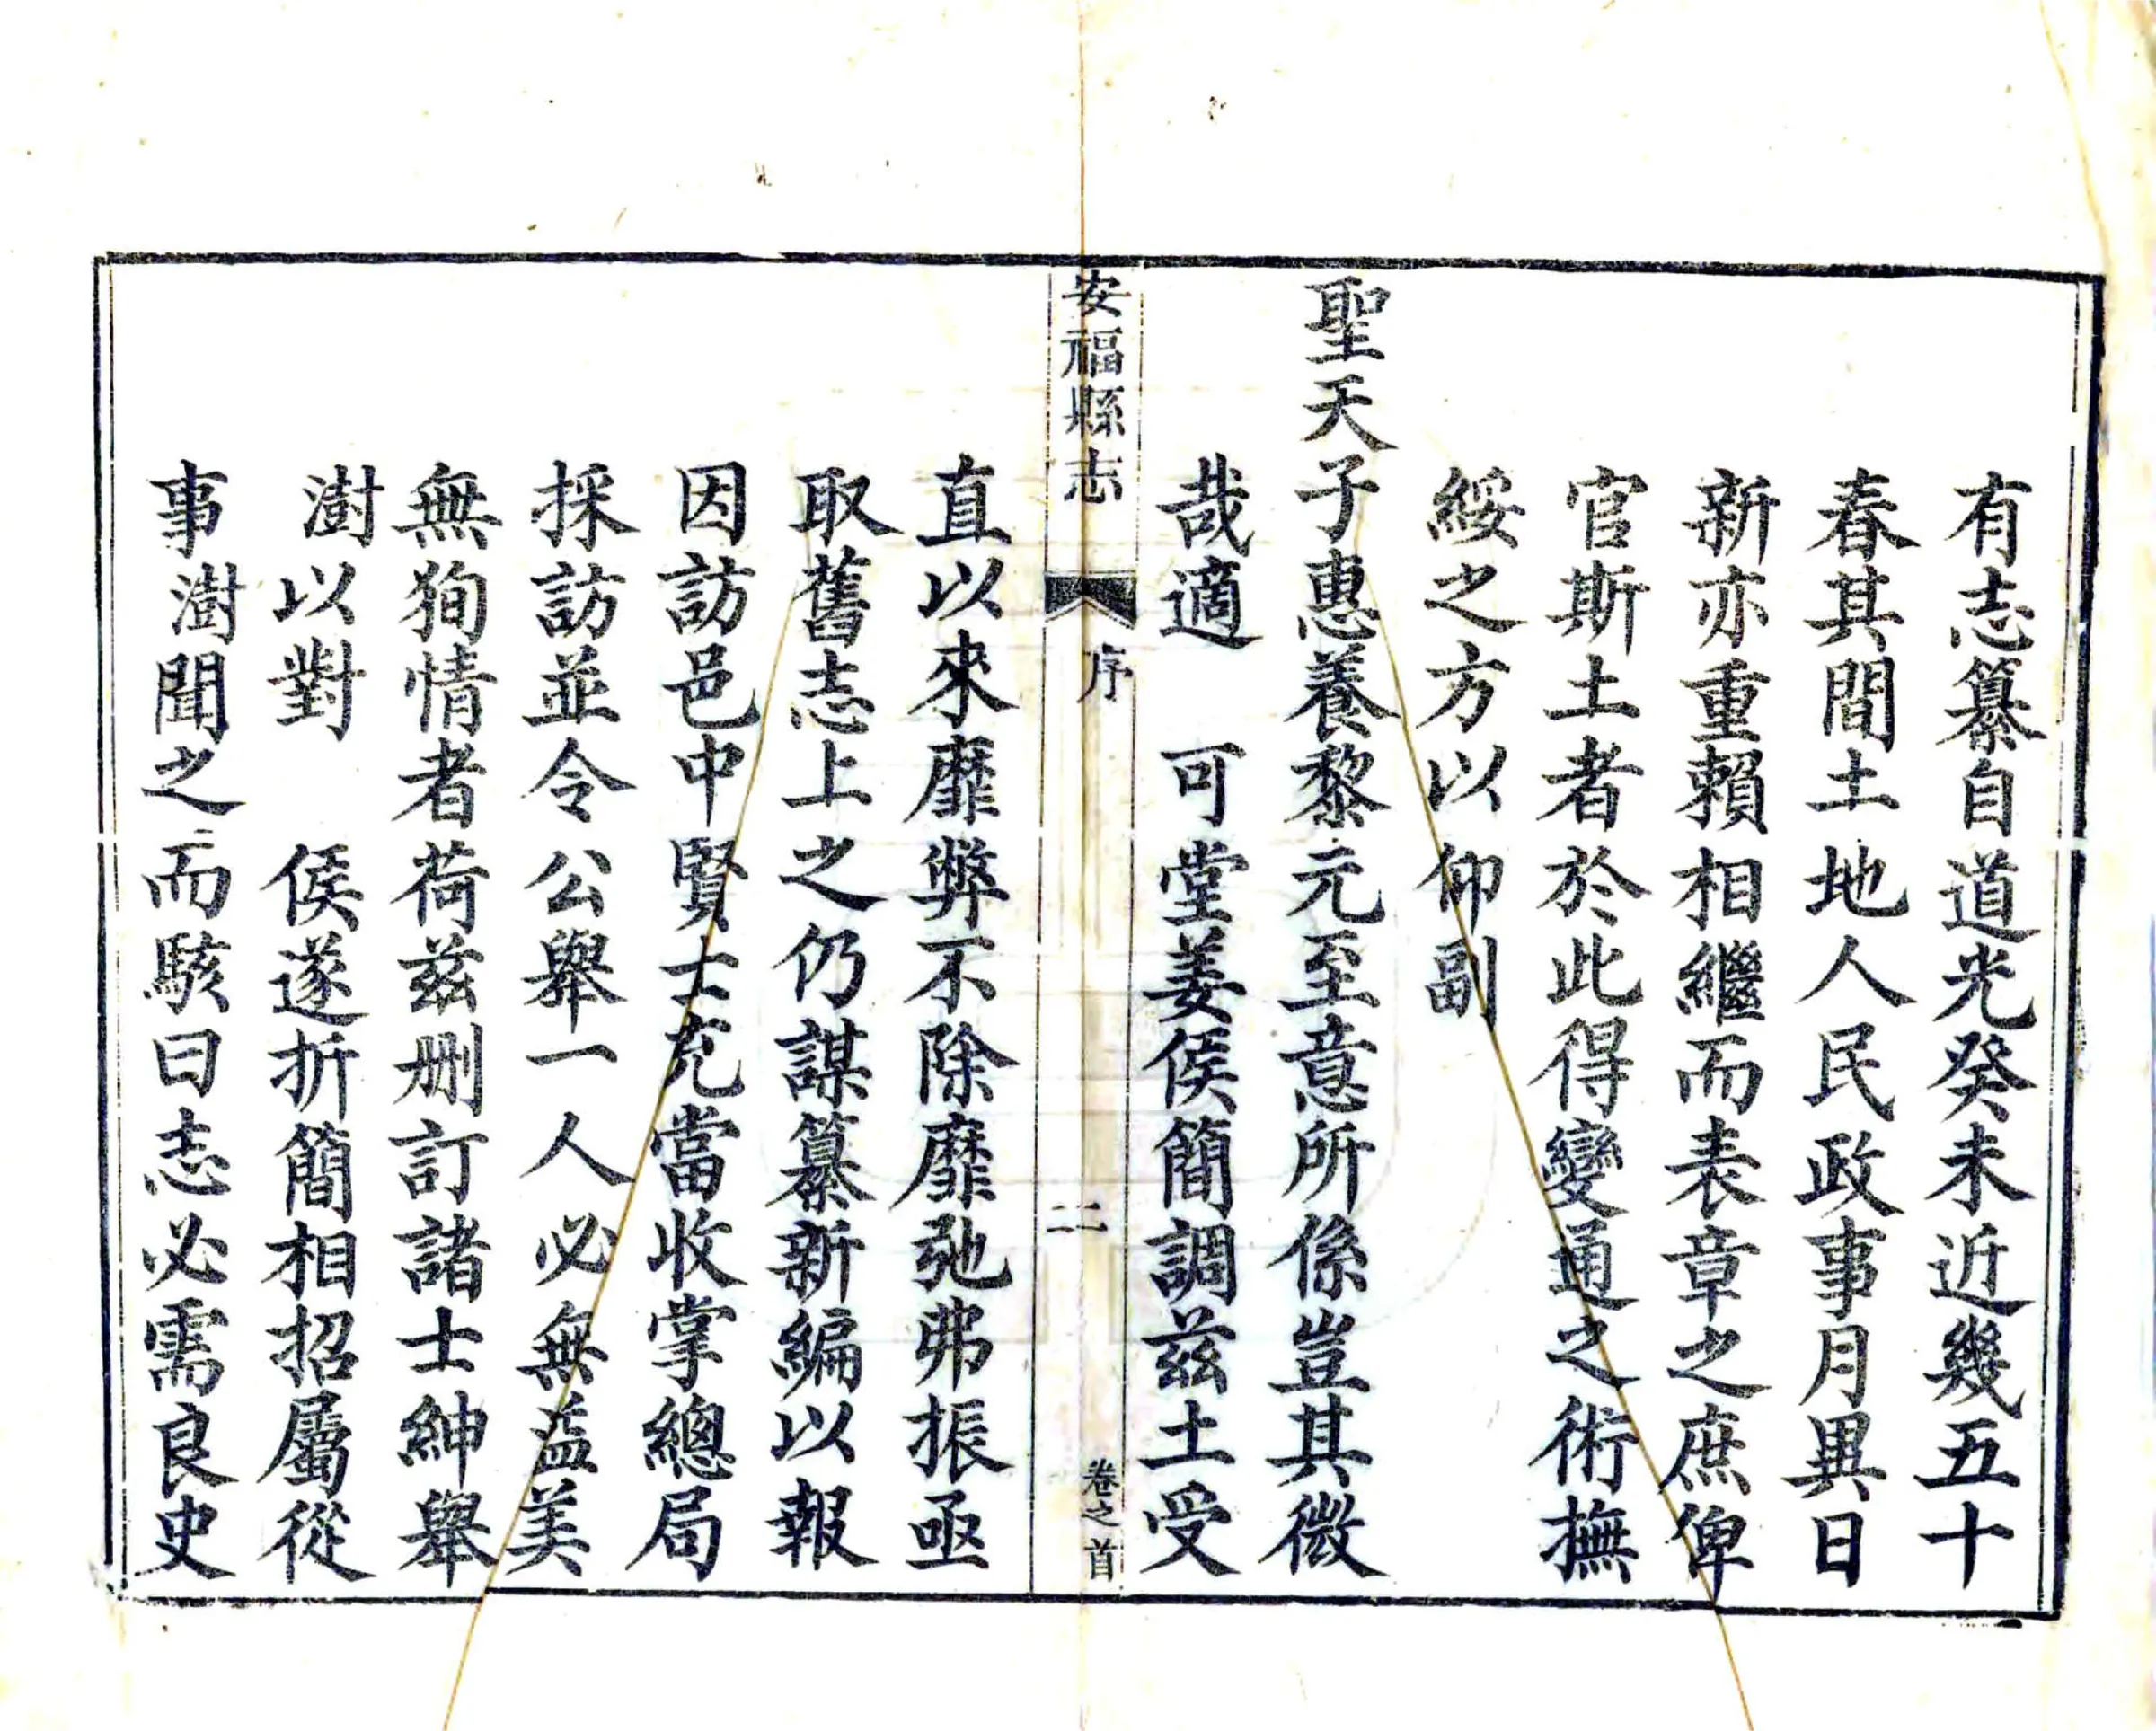 有志纂自道光癸未近幾五十
春其間土地人民政事月異日
新亦重賴相繼而表章之庶俾
官斯土者於此得變通之術撫
綏之方以仰副
聖天子惠養黎元至意所係豈其微
哉適 可堂姜侯簡調茲土受
安福縣志 序 二 卷之首
直以來靡弊不除靡弛弗振亟
取舊志上之仍謀纂新編以報
因訪邑中賢士克當收掌總局
採訪並令公舉一人必無益美
無狥情者荷茲刪訂諸士紳舉
澍以對 侯遂折簡相招屬從
事澍聞之而駭曰志必需良史